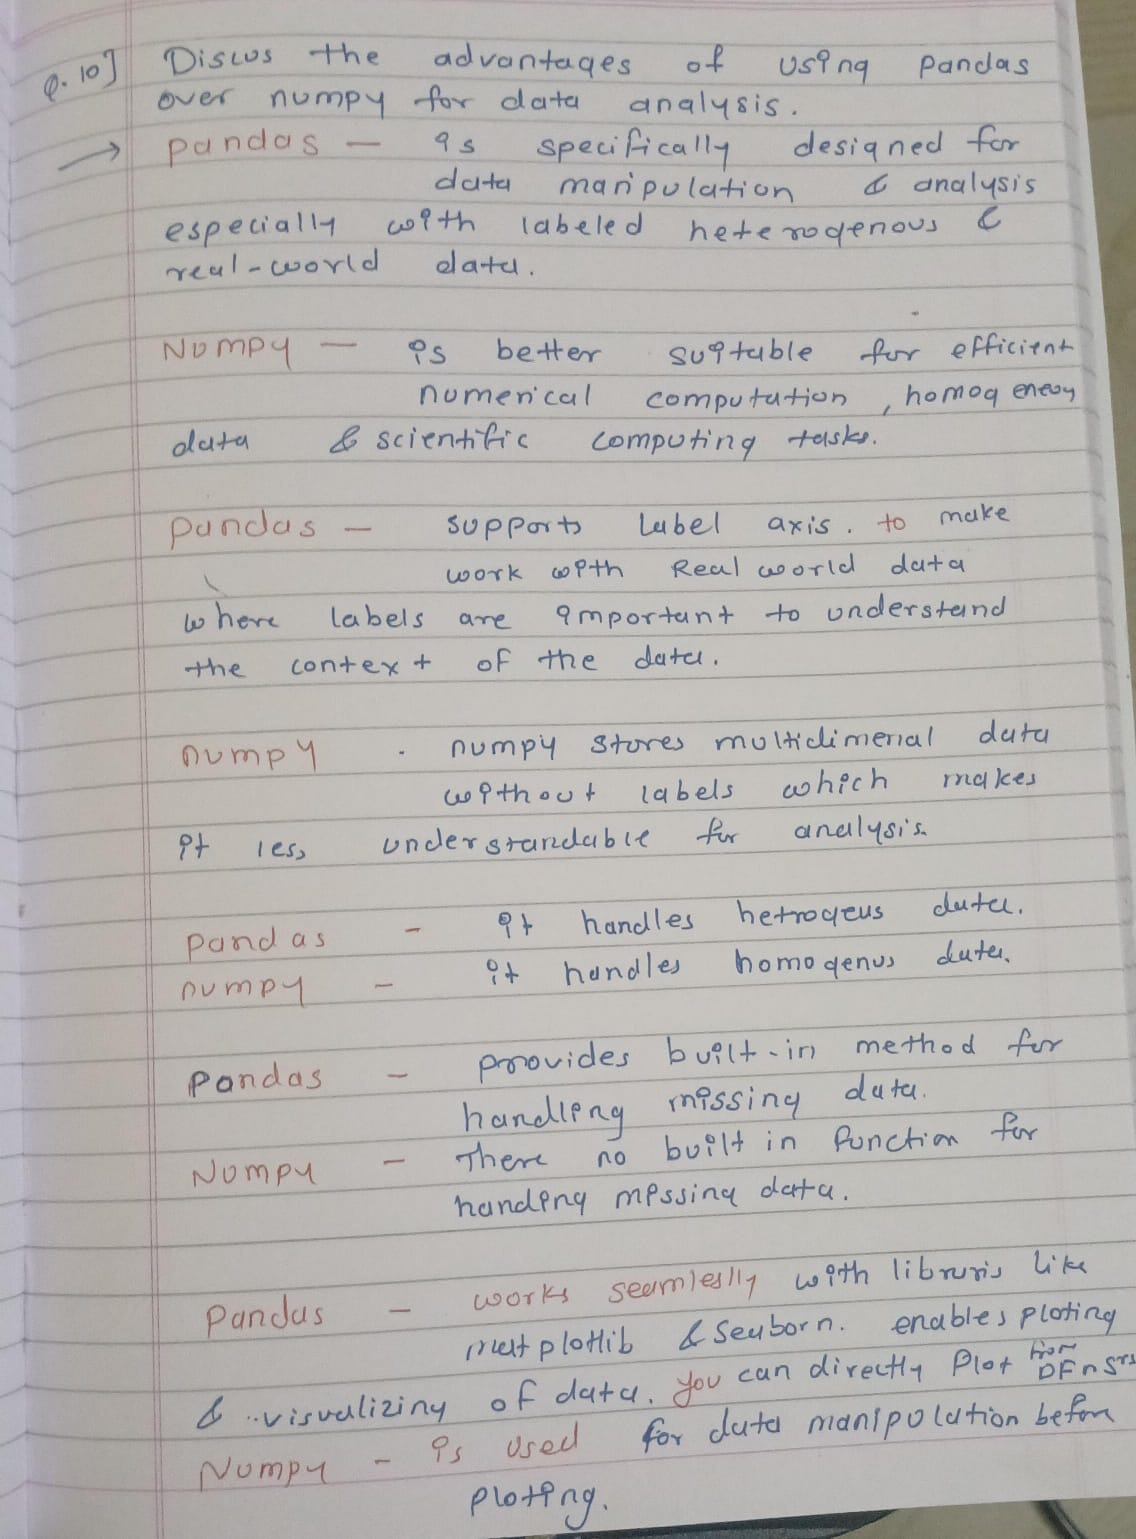 Q.10] Discus the advantages of using pandas
over numpy for data analysis.
→ pandas — is specifically designed for
data manipulation & analysis
especially with labeled heterogenous &
real-world data.
Numpy — is better suitable for efficient
numerical computation, homogeneoy
data & scientific computing tasks.
pandas — supports label axis. to make
work with Real world data
where labels are important to understand
the context of the data.
numpy - numpy stores multidimenal data
without labels which makes
it less understandable for analysis.
pandas - it handles hetrogeus data.
numpy - it handles homogenus data.
pandas - provides built-in method for
handling missing data.
Numpy - There no built in function for
handing missing data.
Pandas - works seamlesly with libraris like
matplotlib & Seaborn. enables ploting
& visualiziny of data. you can directly Plot from DF n Srs
Numpy - is used for data manipulation before
ploting.